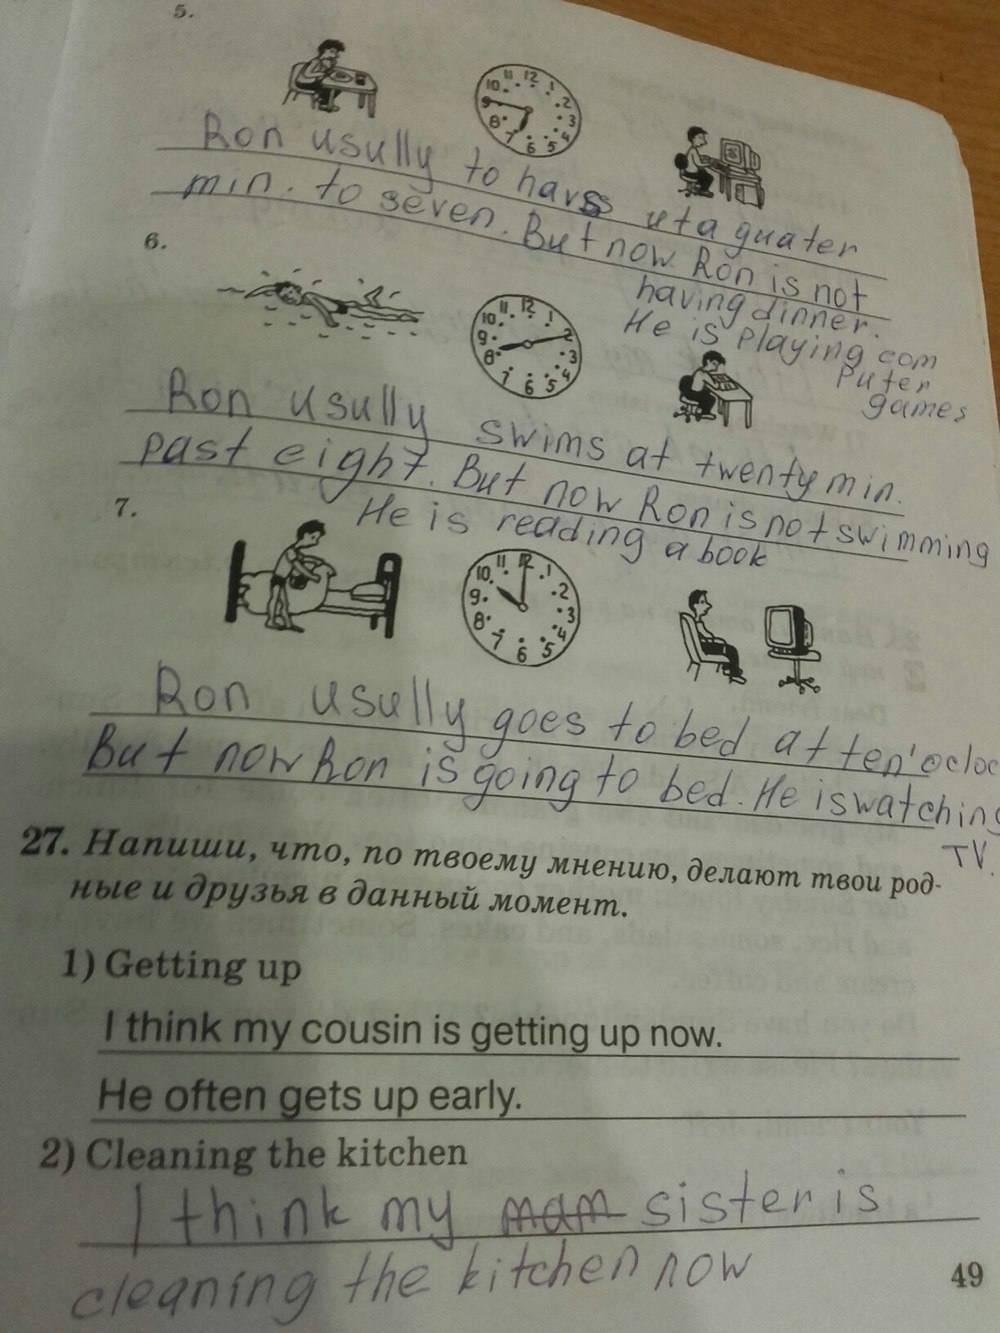 5.
Ron usully to havs uta guater
min. to seven. But now Ron is not
having dinner.
He is playing com
puter
games
6.
Ron usully swims at twenty min.
past eight. But now Ron is not swimming
He is reading a book
7.
Ron usully goes to bed at ten'ocloc
But now Ron is going to bed. He is watching
TV.
27. Напиши, что, по твоему мнению, делают твои род-
ные и друзья в данный момент.
1) Getting up
I think my cousin is getting up now.
He often gets up early.
2) Cleaning the kitchen
I think my mam sister is
cleaning the kitchen now
49